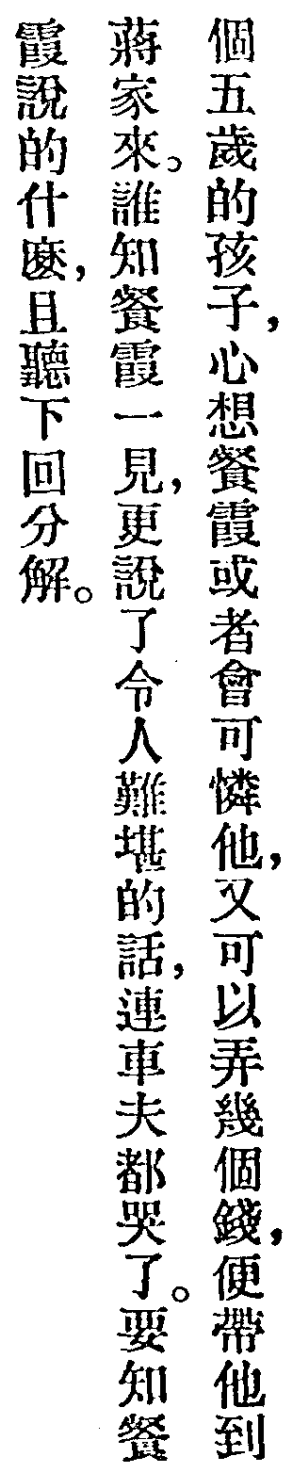 個五歲的孩子，心想餐霞或者會可憐他，又可以弄幾個錢，便帶他到
蔣家來。誰知餐霞一見，更說了令人難堪的話，連車夫都哭了。要知餐
霞說的什麽，且聽下回分解。